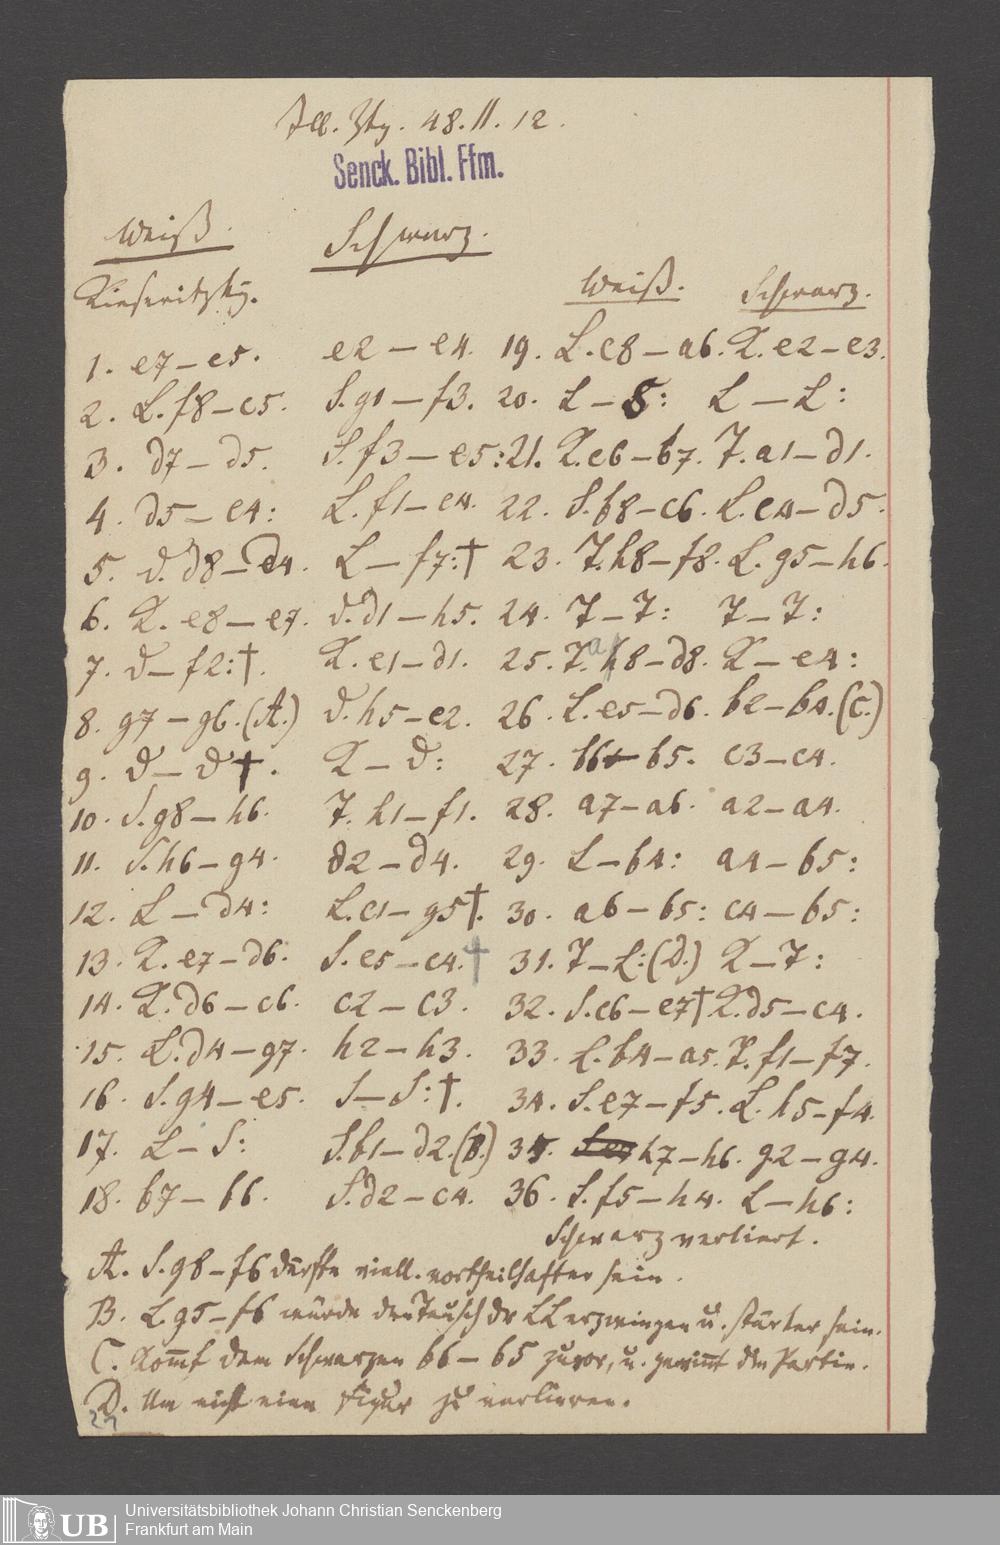 Ill. Ztg. 48. II. 12.
Senck. Bibl. Ffm.
Weiß. Schwarz.
Kieseritzky.
1. e7 – e5. e2 – e4.
2. L. f8 – c5. S. g1 – f3.
3. d7 – d5. S. f3 – e5:
4. d5 – e4: L. f1 – c4.
5. D. d8 – d4. L – f7:†
6. K. e8 – e7. D. d1 – h5.
7. D – f2:†. K. e1 – d1.
8. g7 – g6. (A.) D. h5 – e2.
9. D – D†. K – D:
10. S. g8 – h6. T. h1 – f1.
11. S. h6 – g4. d2 – d4.
12. L – d4: L. c1 – g5†.
13. K. e7 – d6. S. e5 – c4.†
14. K. d6 – c6. c2 – c3.
15. L. d4 – g7. h2 – h3.
16. S. g4 – e5. S – S:†.
17. L – S: S. b1 – d2. (B.)
18. b7 – b6. S. d2 – c4.
Weiß. Schwarz.
19. L. c8 – a6. K. e2 – e3.
20. L – S: L – L:
21. K. c6 – b7. T. a1 – d1.
22. S. b8 – c6. L. c4 – d5.
23. T. h8 – f8. L. g5 – h6.
24. T – T: T – T:
25. T. a8 – d8. K – e4:
26. L. e5 – d6. b2 – b4. (C.)
27. b6 – b5. c3 – c4.
28. a7 – a6. a2 – a4.
29. L – b4: a4 – b5:
30. a6 – b5: c4 – b5:
31. T – L: (D.) K – T:
32. S. c6 – e7† K. d5 – c4.
33. L. b4 – a5. T. f1 – f7.
34. S. e7 – f5. L. h6 – f4.
35. h7 – h6. g2 – g4.
36. S. f5 – h4. L – h6:
Schwarz verliert.
A. S. g8 – f6 dürfte viell. vortheilhafter sein.
B. L. g5 – f6 würde den Tausch der LL erzwingen u. stärker sein.
C. Kom̄t dem Schwarzen b6 – b5 zuvor, u. gewin̄t die Partie.
D. Um nicht eine Figur zu verlieren.
UB
Universitätsbibliothek Johann Christian Senckenberg
Frankfurt am Main